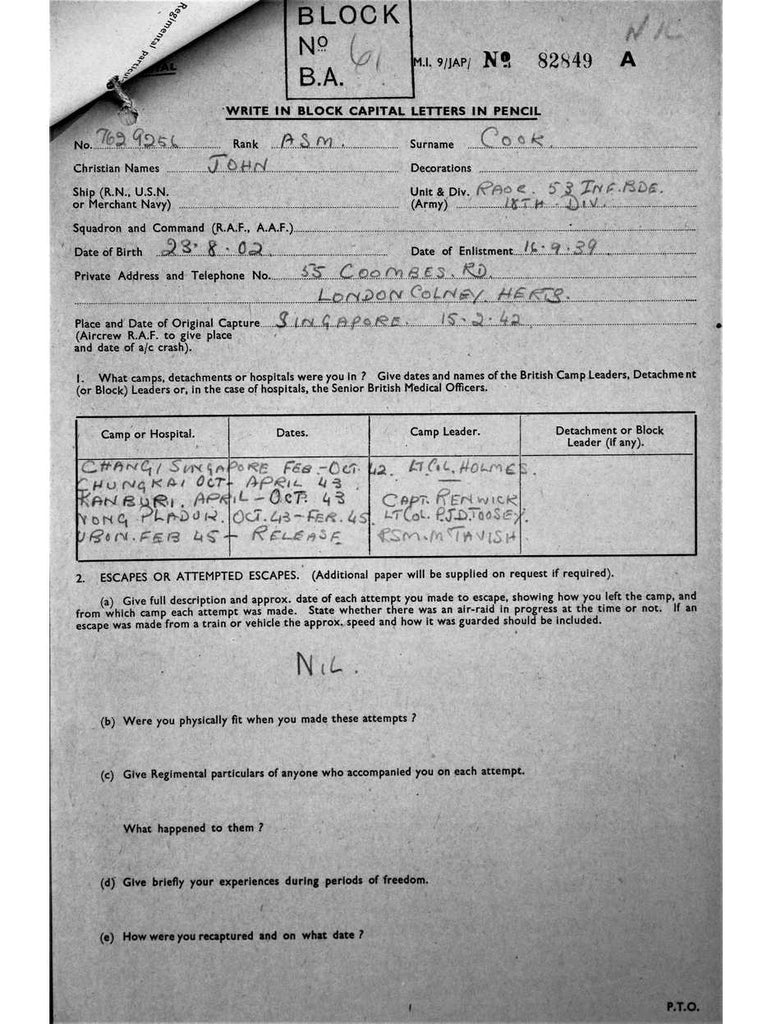 Regimental particu
BLOCK
No 61
B.A.
NIL
M.I. 9/JAP/ No 82849 A
WRITE IN BLOCK CAPITAL LETTERS IN PENCIL
No. 7629256 Rank ASM. Surname COOK.
Christian Names JOHN Decorations
Ship (R.N., U.S.N. Unit & Div. RAOC. 53 INF. BDE.
or Merchant Navy) (Army) 18TH. DIV.
Squadron and Command (R.A.F., A.A.F.)
Date of Birth 23.8.02 Date of Enlistment 16.9.39
Private Address and Telephone No. 55 COOMBES. RD.
LONDON COLNEY. HERTS.
Place and Date of Original Capture SINGAPORE. 15-2-42
(Aircrew R.A.F. to give place
and date of a/c crash).
1. What camps, detachments or hospitals were you in ? Give dates and names of the British Camp Leaders, Detachment
(or Block) Leaders or, in the case of hospitals, the Senior British Medical Officers.
Camp or Hospital. Dates. Camp Leader. Detachment or Block
Leader (if any).
CHANGI SINGAPORE FEB.-OCT. 42. LT. COL. HOLMES.
CHUNGKAI OCT- APRIL 43.
KANBURI. APRIL - OCT. 43 CAPT. RENWICK
NONG PLADUK. OCT. 43 - FEB. 45. LT COL. P.J.D. TOOSEY.
UBON. FEB 45 - RELEASE RSM. McTAVISH.
2. ESCAPES OR ATTEMPTED ESCAPES. (Additional paper will be supplied on request if required).
(a) Give full description and approx. date of each attempt you made to escape, showing how you left the camp, and
from which camp each attempt was made. State whether there was an air-raid in progress at the time or not. If an
escape was made from a train or vehicle the approx. speed and how it was guarded should be included.
NIL.
(b) Were you physically fit when you made these attempts ?
(c) Give Regimental particulars of anyone who accompanied you on each attempt.
What happened to them ?
(d) Give briefly your experiences during periods of freedom.
(e) How were you recaptured and on what date ?
P.T.O.